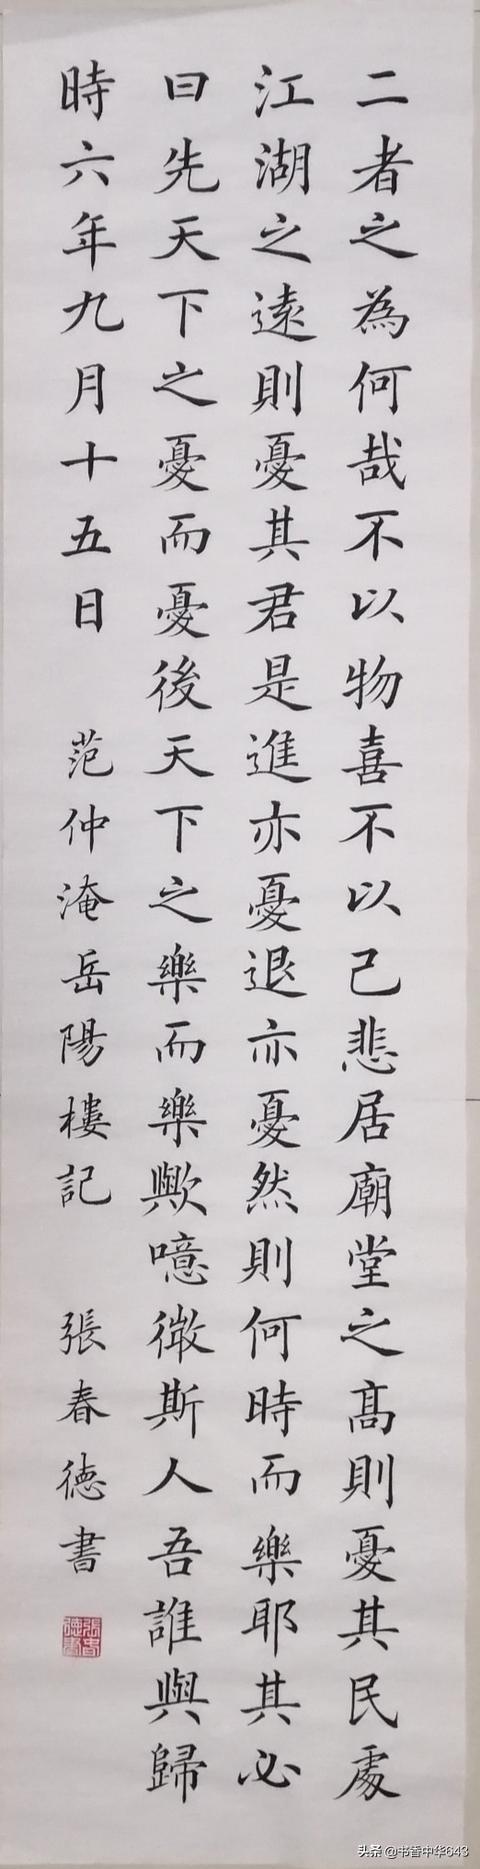 二者之為何哉不以物喜不以己悲居廟堂之髙則憂其民處
江湖之遠則憂其君是進亦憂退亦憂然則何時而樂耶其必
曰先天下之憂而憂後天下之樂而樂歟噫微斯人吾誰與歸
時六年九月十五日 范仲淹岳陽樓記 張春德書
張春德書
头条 @书香中华643